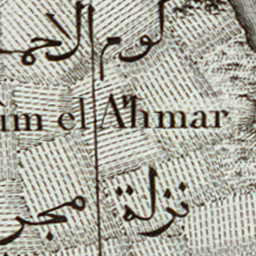 كوم الاحمر
m el A'hmar
نزلة